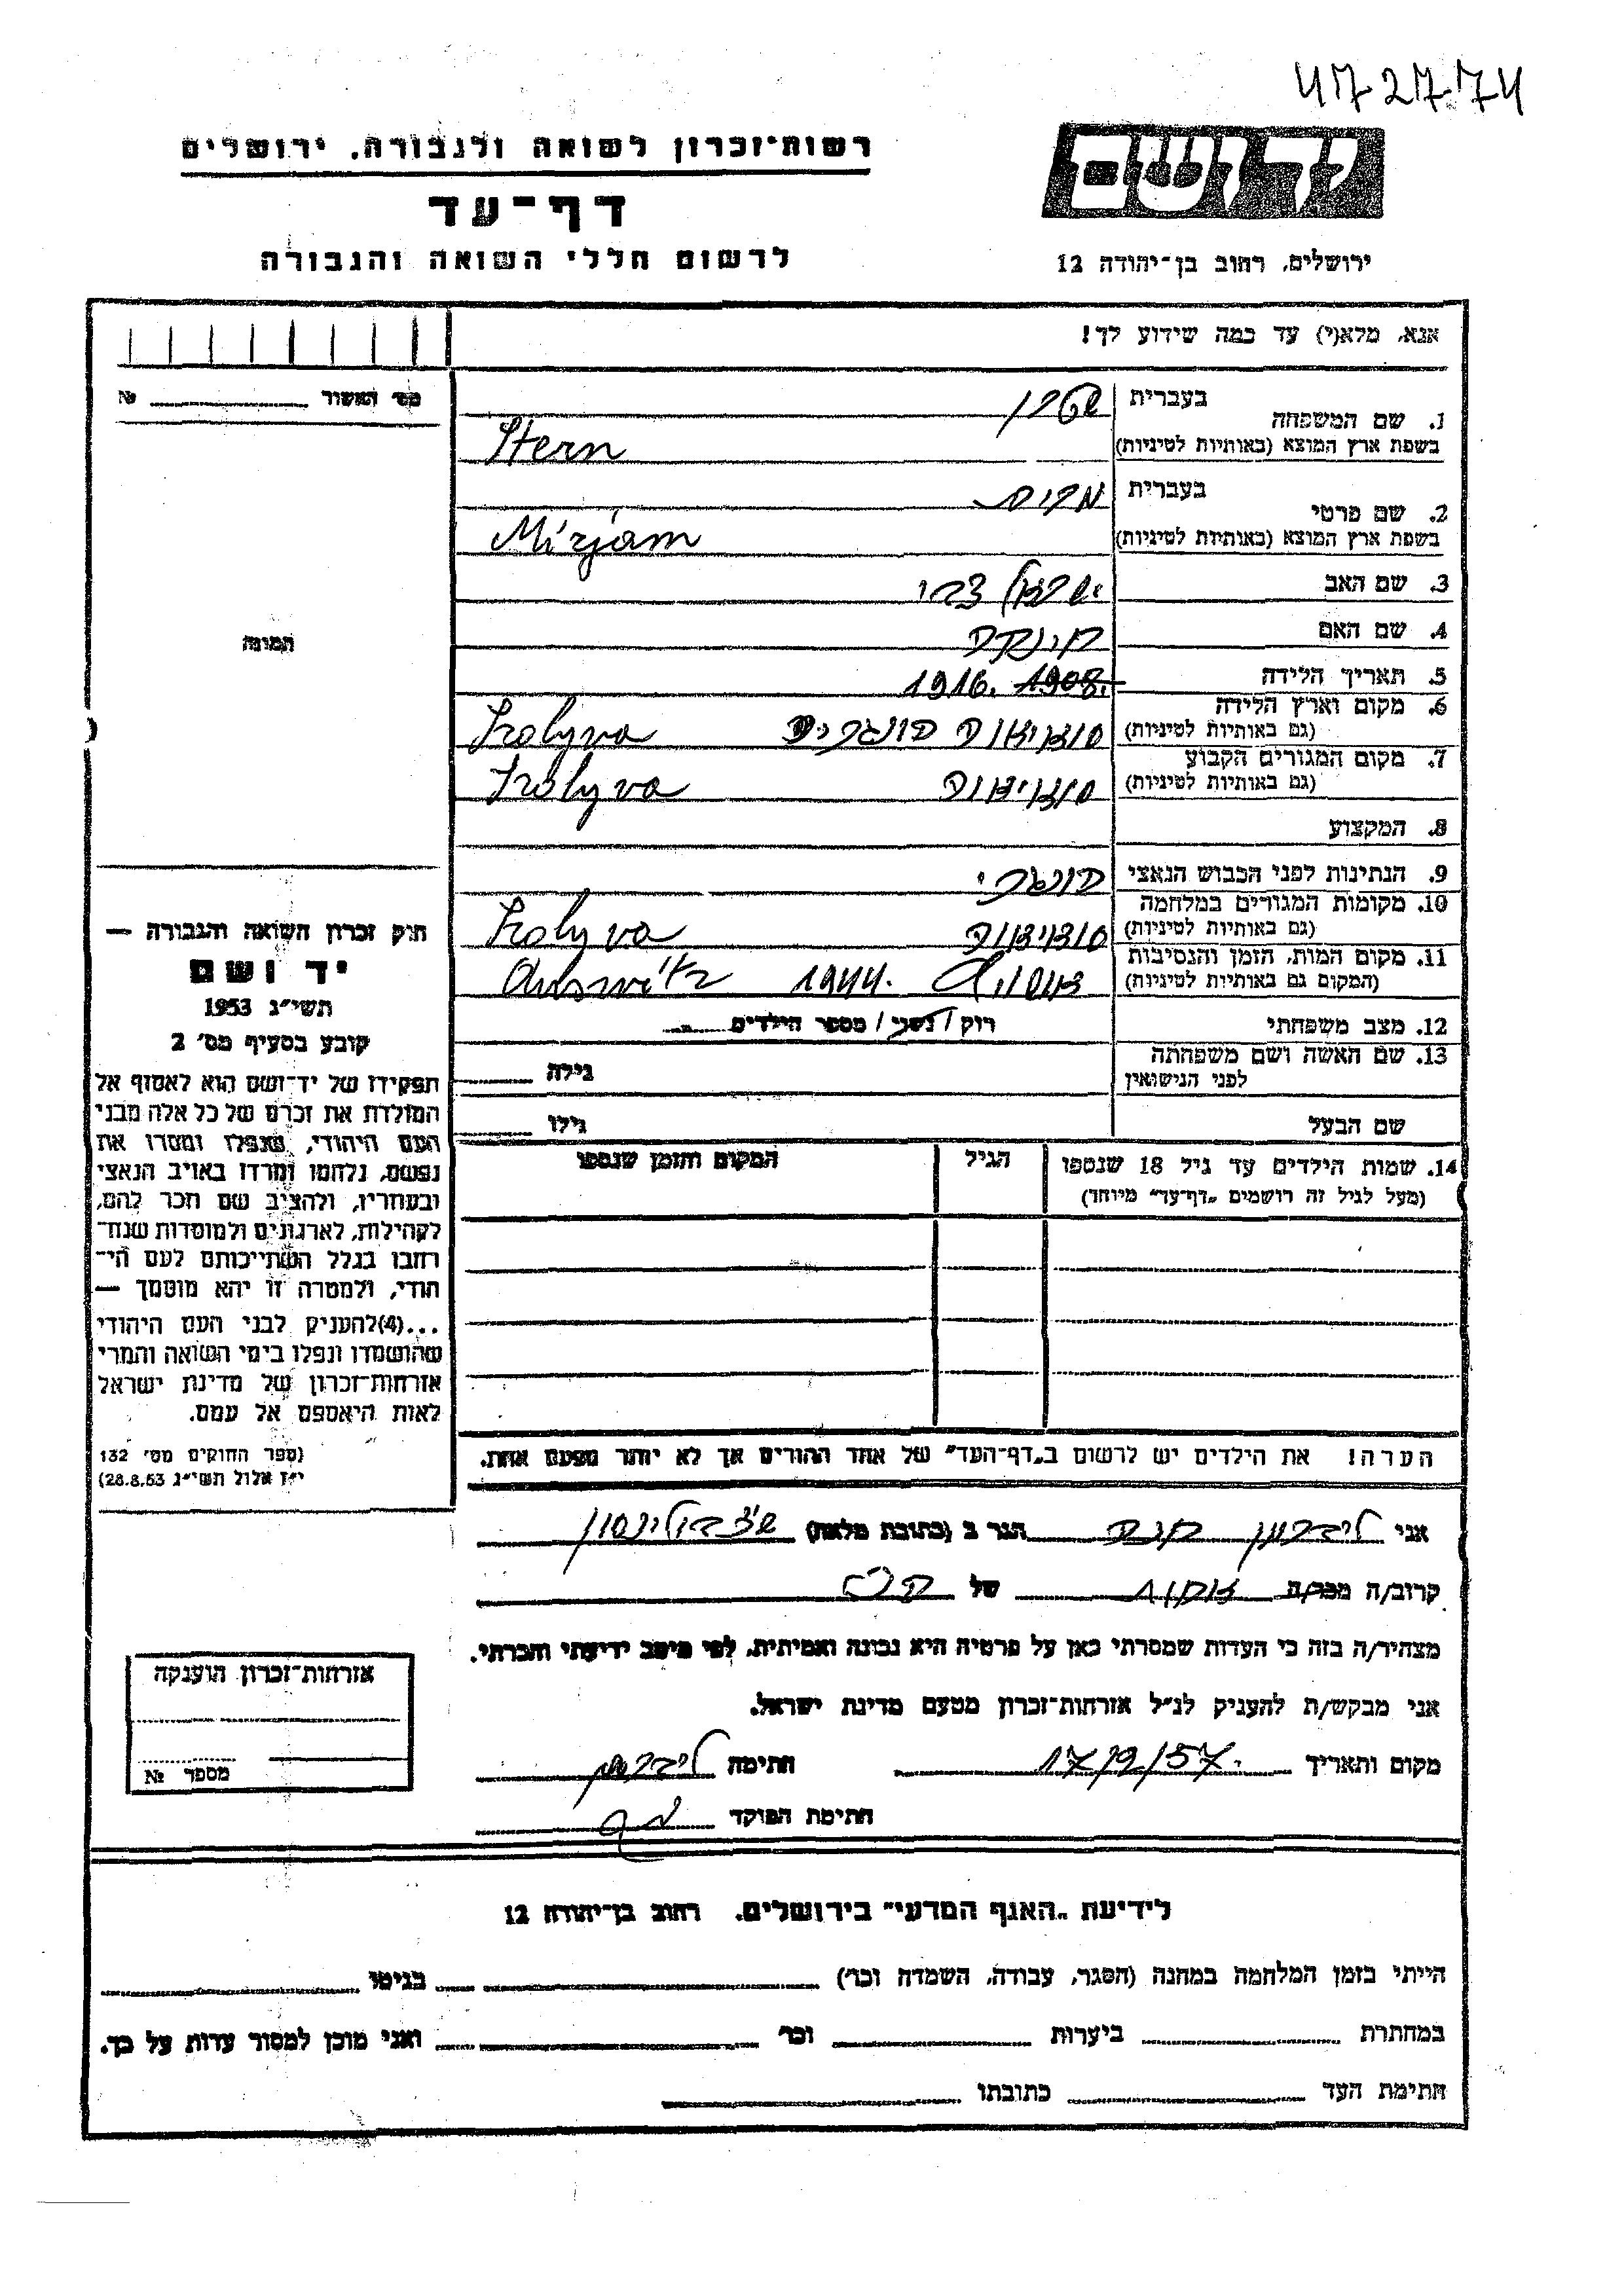 4727.74
רשות־זכרון לשואה ולגבורה. ירושלים
דף־עד
לרשום חללי השואה והגבורה
יד ושם
ירושלים, רחוב בן־יהודה 12
אנא, מלא(י) עד כמה שידוע לך!
מס׳ האשור № 
1. שם המשפחה בעברית שטרן
בשפת ארץ המוצא (באותיות לטיניות) Stern
2. שם פרטי בעברית מרים
בשפת ארץ המוצא (באותיות לטיניות) Mirjam
3. שם האב ישראל צבי
4. שם האם
5. תאריך הלידה 1908. 1916.
6. מקום וארץ הלידה (גם באותיות לטיניות) הונגריה Szolyva
7. מקום המגורים הקבוע (גם באותיות לטיניות) Szolyva
8. המקצוע
9. הנתינות לפני הכבוש הנאצי הונגרי
10. מקומות המגורים במלחמה (גם באותיות לטיניות) Szolyva
11. מקום המות, הזמן והנסיבות (המקום גם באותיות לטיניות) 1944. Auswitz
12. מצב משפחתי רוק / נשוי / מספר הילדים
13. שם האשה ושם משפחתה לפני הנישואין גילה
שם הבעל גילו
14. שמות הילדים עד גיל 18 שנספו הגיל המקום והזמן שנספו
(מעל לגיל זה רושמים „דף־עד״ מיוחד)
הערה! את הילדים יש לרשום ב„דף־העד״ של אחד ההורים אך לא יותר מפעם אחת.
התמונה
חוק זכרון השואה והגבורה —
יד ושם
תשי״ג 1953
קובע בסעיף מס׳ 2
תפקידו של יד־ושם הוא לאסוף אל
המולדת את זכרם של כל אלה מבני
העם היהודי, שנפלו ומסרו את
נפשם, נלחמו ומרדו באויב הנאצי
ובעוזריו, ולהציב שם וזכר להם,
לקהילות, לארגונים ולמוסדות שנח־
רבו בגלל השתייכותם לעם הי־
הודי, ולמטרה זו יהא מוסמך —
...(4) להעניק לבני העם היהודי
שהושמדו ונפלו בימי השואה והמרי
אזרחות־זכרון של מדינת ישראל
לאות היאספם אל עמם.
(ספר החוקים מס׳ 132
י״ז אלול תשי״ג 28.8.53)
אני ליברמן הגר ב (כתובת מלאה)
קרוב/ה מכר/ה אחות של
מצהיר/ה בזה כי העדות שמסרתי כאן על פרטיה היא נכונה ואמיתית, לפי מיטב ידיעתי והכרתי.
אני מבקש/ת להעניק לנ״ל אזרחות־זכרון מטעם מדינת ישראל.
מקום ותאריך 17/2/57. חתימה ליברמן
חתימת הפוקד
אזרחות־זכרון הוענקה
מספר №
לידיעת „האגף המדעי״ בירושלים. רחוב בן־יהודה 12
הייתי בזמן המלחמה במחנה (הסגר, עבודה, השמדה וכו׳) בגיטו
במחתרת ביערות וכו׳ ואני מוכן למסור עדות על כך.
חתימת העד כתובתו